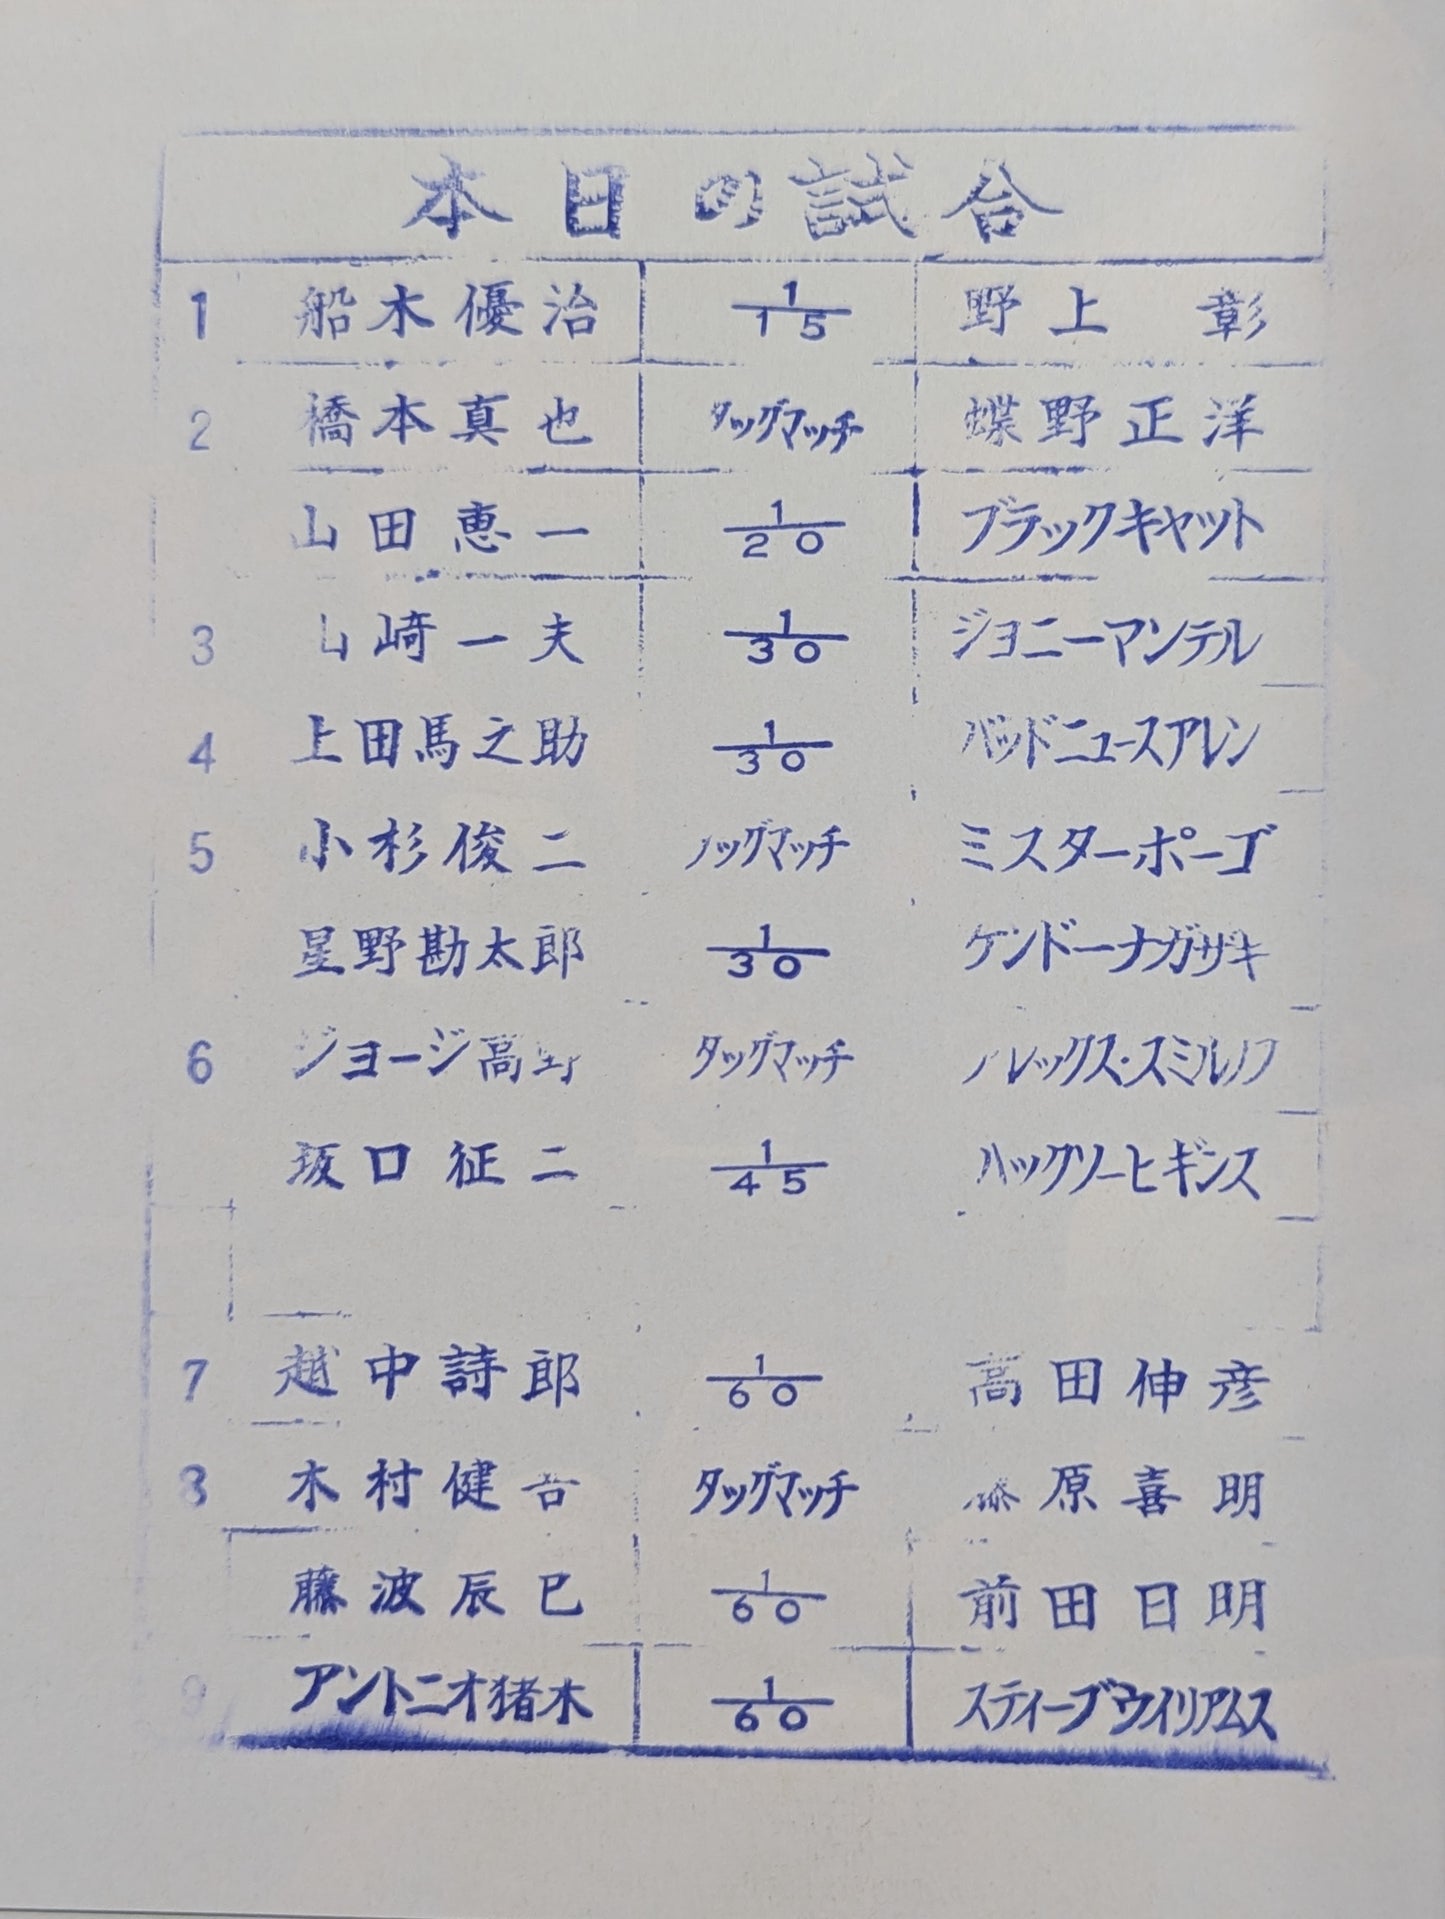 本日の試合
1 船木優治 1/15 野上 彰
2 橋本真也 タッグマッチ 蝶野正洋
山田恵一 1/20 ブラックキャット
3 山崎一夫 1/30 ジョニーマンテル
4 上田馬之助 1/30 バッドニュースアレン
5 小杉俊二 タッグマッチ ミスターポーゴ
星野勘太郎 1/30 ケンドーナガサキ
6 ジョージ高野 タッグマッチ アレックス・スミルノフ
坂口征二 1/45 ハックソーヒギンス
7 越中詩郎 1/60 高田伸彦
8 木村健吾 タッグマッチ 藤原喜明
藤波辰巳 1/60 前田日明
9 アントニオ猪木 1/60 スティーブウイリアムス